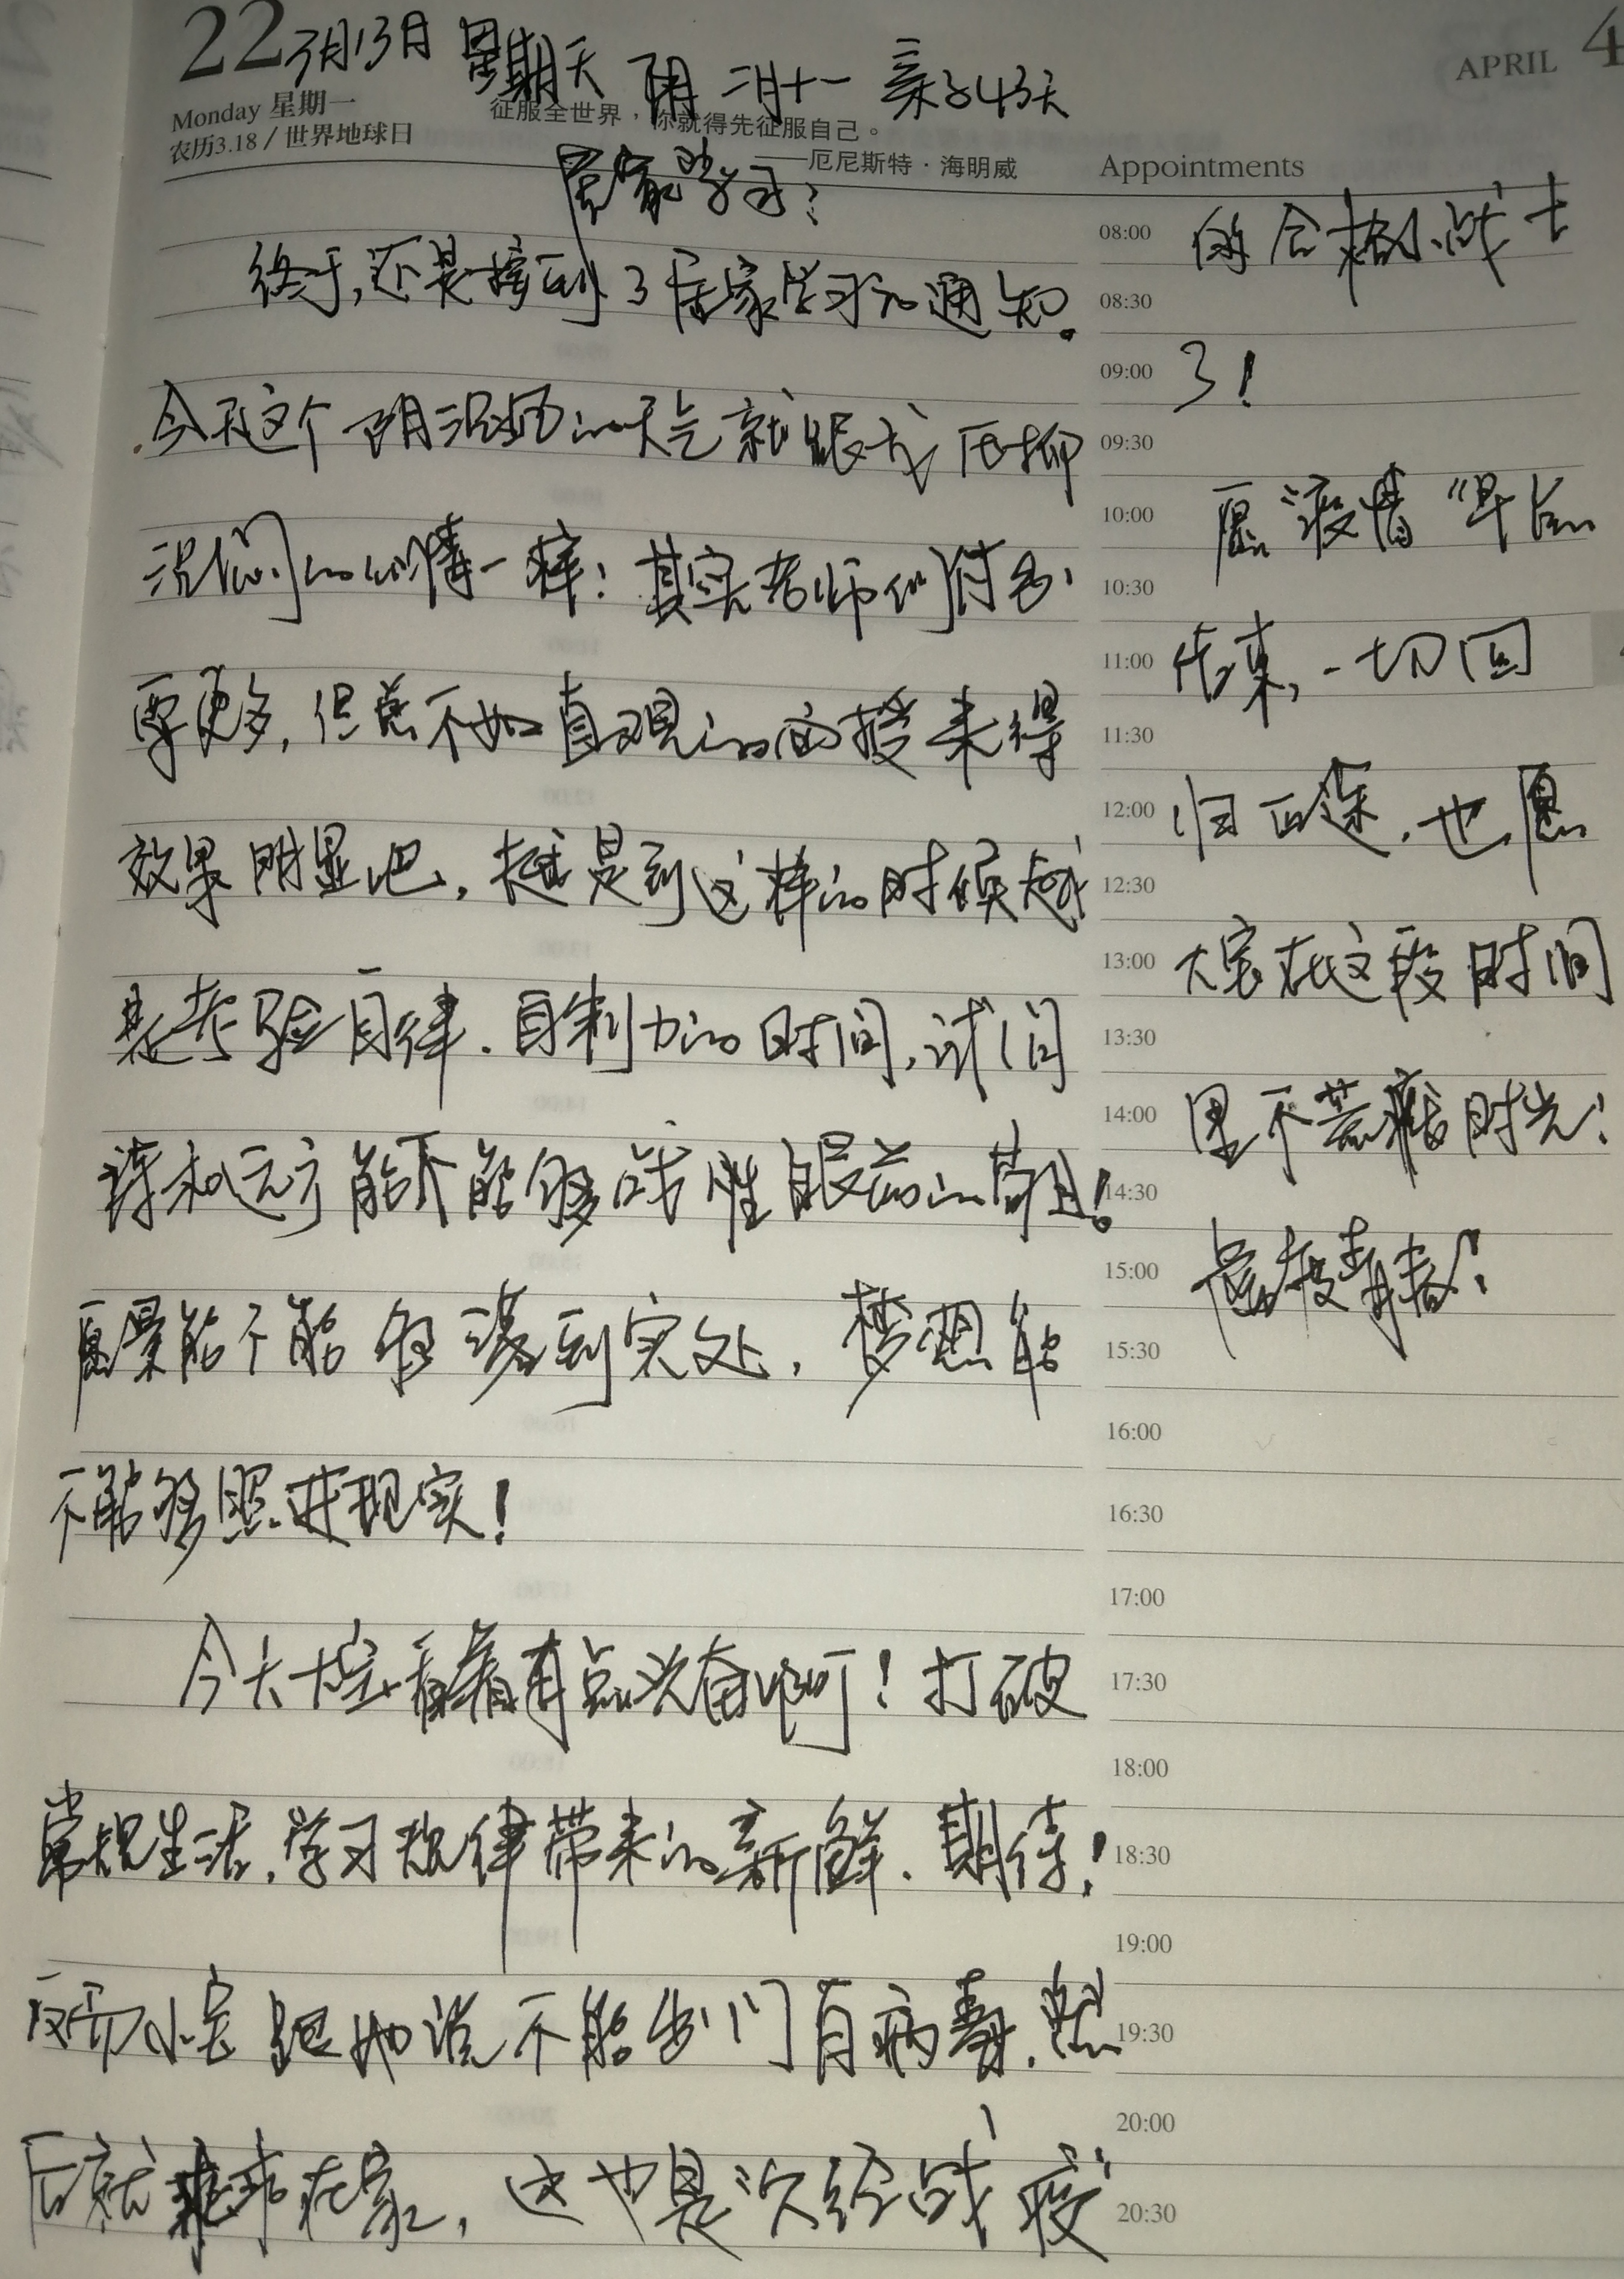 22 3月13日 星期天 阴 二月十一 亲子43天
APRIL 4
Monday 星期一
农历3.18 / 世界地球日
征服全世界，你就得先征服自己。
——厄尼斯特·海明威
居家学习！
终于,还是接到了居家学习的通知。
今天这个阴沉沉的天气就跟我压抑
沉闷的心情一样！其实老师们付出
要更多,但总不如直观的面授来得
效果明显吧,越是到这样的时候越
是考验自律、自制力的时间,试问
诗和远方能不能够战胜眼前的苟且!
愿景能不能够落到实处,梦想能
不能够照进现实!
今天大宝看着有点兴奋啊!打破
常规生活,学习规律带来的新鲜、期待!
反而小宝跟她说不能出门有病毒,然
后就乖乖在家,这也是次经战疫
Appointments
08:00 的合格小战士
08:30
09:00 了!
09:30
10:00 愿“疫情”早点
10:30
11:00 结束,一切回
11:30
12:00 归正途,也愿
12:30
13:00 大家在这段时间
13:30
14:00 里不荒废时光!
14:30
15:00 虚度青春!
15:30
16:00
16:30
17:00
17:30
18:00
18:30
19:00
19:30
20:00
20:30